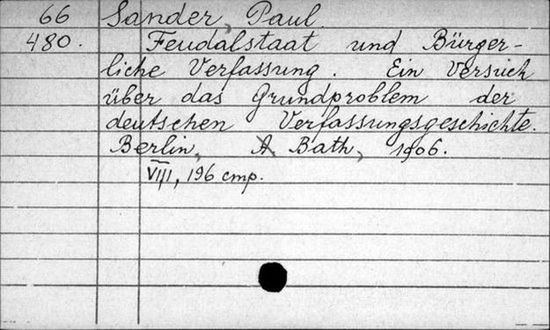 66 Sander, Paul.
480. Feudalstaat und Bürger-
liche Verfassung. Ein Versuch
über das Grundproblem der
deutschen Verfassungsgeschichte.
Berlin, A. Bath, 1906.
VIII, 196 стр.